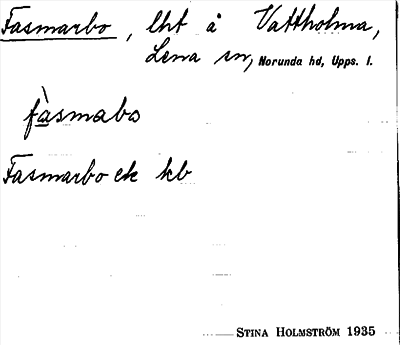 Fasmarbo, lht å Vattholma,
Lena sn, Norunda hd, Upps. l.
fàsmabo
Fasmarbo ek kb
STINA HOLMSTRÖM 1935